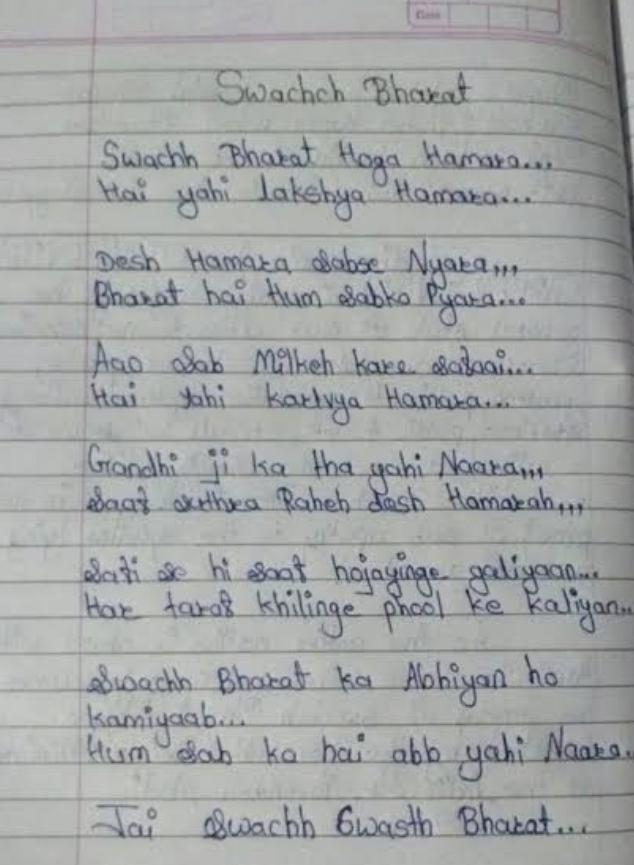 Date
Swachch Bharat
Swachh Bharat Hoga Hamara...
Hai yahi lakshya Hamara...
Desh Hamara sabse Nyara,,,
Bharat hai Hum sabko Pyara...
Aao sab Milkeh kare safaai...
Hai yahi kartvya Hamara...
Grandhi ji ka tha yahi Naara,,,
saaf suthra Raheh desh Hamarah,,,
safi se hi saaf hojayinge galiyaan...
Har taraf khilinge phool ke kaliyan..
Swachh Bharat ka Abhiyan ho
kamiyaab...
Hum sab ka hai abb yahi Naara.
Jai Swachh Swasth Bharat...